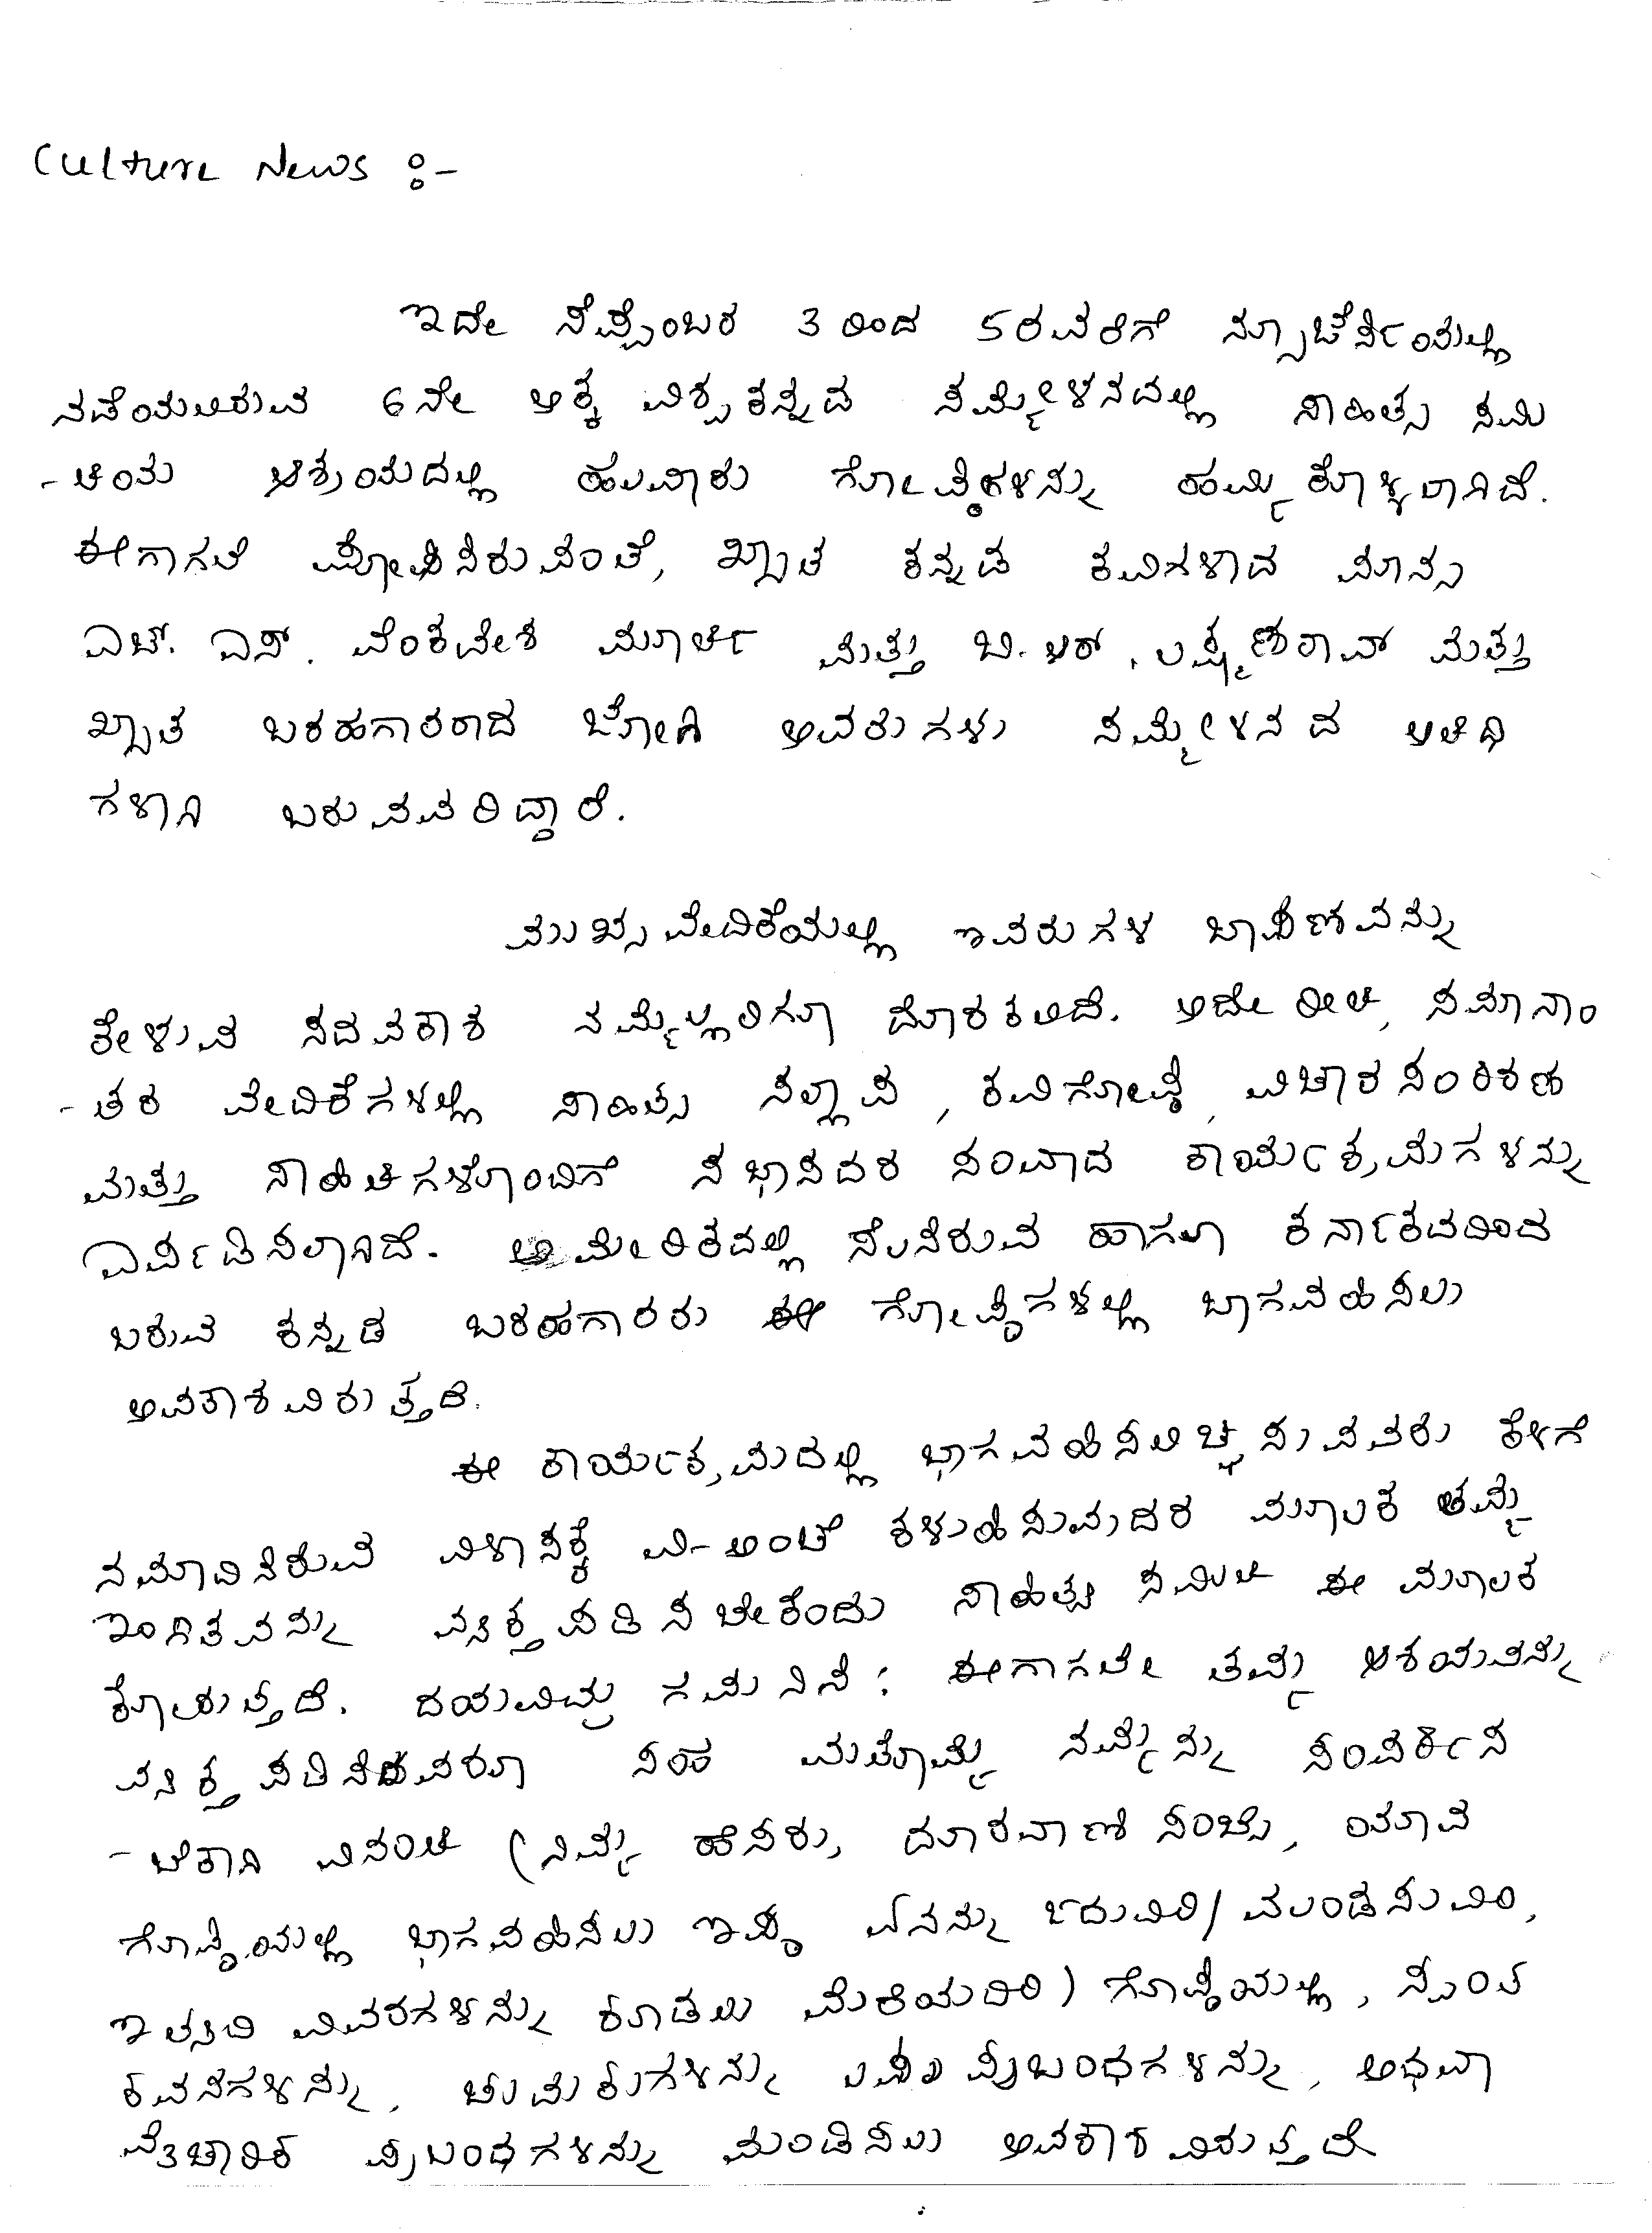 Culture News :-
ಇದೇ ಸೆಪ್ಟೆಂಬರ 3 ರಿಂದ 5ರವರೆಗೆ ನ್ಯೂಜೆರ್ಸಿಯಲ್ಲಿ
ನಡೆಯಲಿರುವ 6ನೇ ಅಕ್ಕ ವಿಶ್ವಕನ್ನಡ ಸಮ್ಮೇಳನದಲ್ಲಿ ಸಾಹಿತ್ಯ ಸಮಿ
-ತಿಯ ಆಶ್ರಯದಲ್ಲಿ ಹಲವಾರು ಗೋಷ್ಠಿಗಳನ್ನು ಹಮ್ಮಿಕೊಳ್ಳಲಾಗಿದೆ.
ಈಗಾಗಲೆ ಘೋಷಿಸಿರುವಂತೆ, ಖ್ಯಾತ ಕನ್ನಡ ಕವಿಗಳಾದ ಮಾನ್ಯ
ಎಚ್. ಎಸ್. ವೆಂಕಟೇಶ ಮೂರ್ತಿ ಮತ್ತು ಬಿ. ಆರ್. ಲಕ್ಷ್ಮಣರಾವ್ ಮತ್ತು
ಖ್ಯಾತ ಬರಹಗಾರರಾದ ಜೋಗಿ ಅವರುಗಳು ಸಮ್ಮೇಳನದ ಅತಿಥಿ
ಗಳಾಗಿ ಬರುವವರಿದ್ದಾರೆ.
ಮುಖ್ಯವೇದಿಕೆಯಲ್ಲಿ ಇವರುಗಳ ಭಾಷಣವನ್ನು
ಕೇಳುವ ಸದವಕಾಶ ನಮ್ಮೆಲ್ಲರಿಗೂ ದೊರಕಲಿದೆ. ಅದೇ ರೀತಿ, ಸಮಾನಾಂ
-ತರ ವೇದಿಕೆಗಳಲ್ಲಿ ಸಾಹಿತ್ಯ ಸಲ್ಲಾಪ, ಕವಿಗೋಷ್ಠಿ, ವಿಚಾರಸಂಕಿರಣ
ಮತ್ತು ಸಾಹಿತಿಗಳೊಂದಿಗೆ ಸಭಾಸದರ ಸಂವಾದ ಕಾರ್ಯಕ್ರಮಗಳನ್ನು
ಏರ್ಪಡಿಸಲಾಗಿದೆ. ಅಮೇರಿಕದಲ್ಲಿ ನೆಲಸಿರುವ ಹಾಗೂ ಕರ್ನಾಟಕದಿಂದ
ಬರುವ ಕನ್ನಡ ಬರಹಗಾರರು ಈ ಗೋಷ್ಠಿಗಳಲ್ಲಿ ಭಾಗವಹಿಸಲು
ಅವಕಾಶವಿರುತ್ತದೆ.
ಈ ಕಾರ್ಯಕ್ರಮದಲ್ಲಿ ಭಾಗವಹಿಸಲಿಚ್ಛಿಸುವವರು ಕೆಳಗೆ
ನಮೂದಿಸಿರುವ ವಿಳಾಸಕ್ಕೆ ಮಿ-ಅಂಚೆ ಕಳುಹಿಸುವುದರ ಮೂಲಕ ತಮ್ಮ
ಇಂಗಿತವನ್ನು ವ್ಯಕ್ತಪಡಿಸಬೇಕೆಂದು ಸಾಹಿತ್ಯ ಸಮಿತಿ ಈ ಮೂಲಕ
ಕೋರುತ್ತದೆ. ದಯವಿಟ್ಟು ಗಮನಿಸಿ : ಈಗಾಗಲೇ ತಮ್ಮ ಆಶಯವನ್ನು
ವ್ಯಕ್ತ ಪಡಿಸಿರುವವರೂ ಸಹ ಮತ್ತೊಮ್ಮೆ ನಮ್ಮನ್ನು ಸಂಪರ್ಕಿಸ
-ಬೇಕಾಗಿ ವಿನಂತಿ (ನಿಮ್ಮ ಹೆಸರು, ದೂರವಾಣಿ ಸಂಖ್ಯೆ, ಯಾವ
ಗೋಷ್ಠಿಯಲ್ಲಿ ಭಾಗವಹಿಸಲು ಇಷ್ಟ ಏನನ್ನು ಓದುವಿರಿ/ ಮಂಡಿಸುವಿರಿ,
ಇತ್ಯಾದಿ ವಿವರಗಳನ್ನು ಕೂಡಲು ಮರೆಯದಿರಿ) ಗೋಷ್ಠಿಯಲ್ಲಿ, ಸ್ವಂತ
ಕವನಗಳನ್ನು, ಚುಟುಕುಗಳನ್ನು ಲಲಿತ ಪ್ರಬಂಧಗಳನ್ನು, ಅಥವಾ
ವೈಚಾರಿಕ ಪ್ರಬಂಧಗಳನ್ನು ಮಂಡಿಸಲು ಅವಕಾಶವಿರುತ್ತದೆ